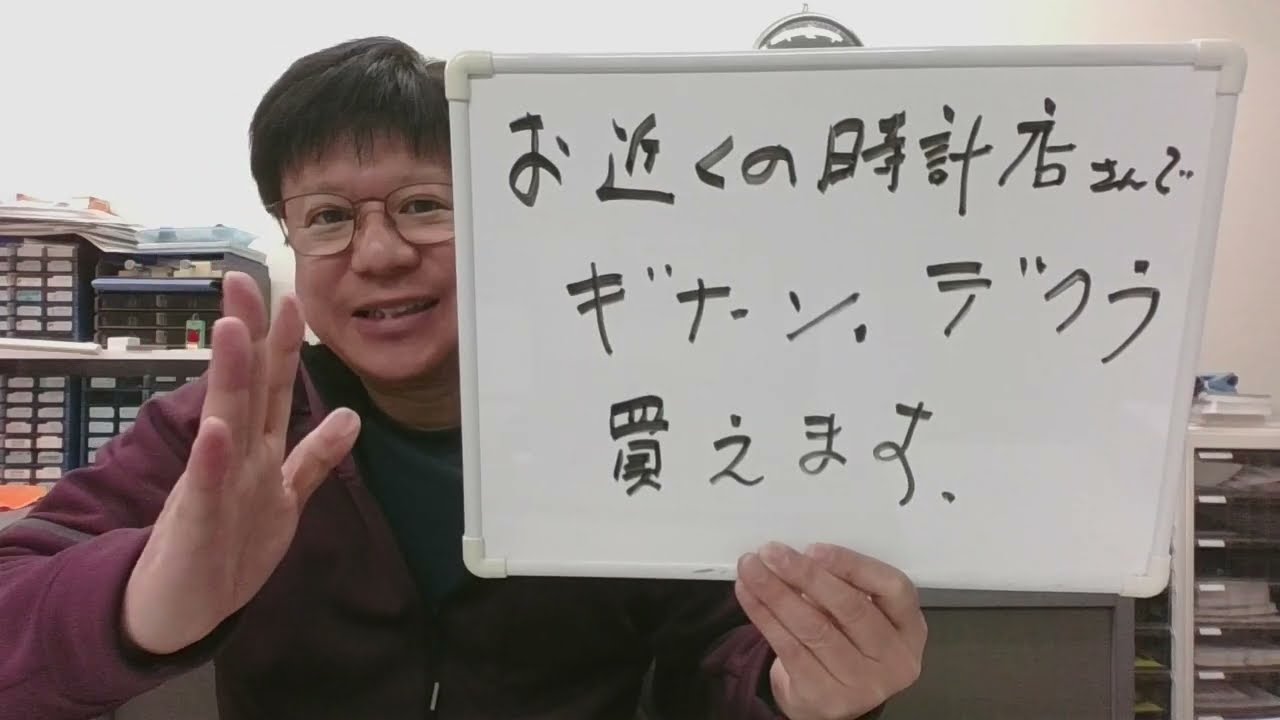 お近くの時計店さんで
ギナーン、デクラ
買えます、